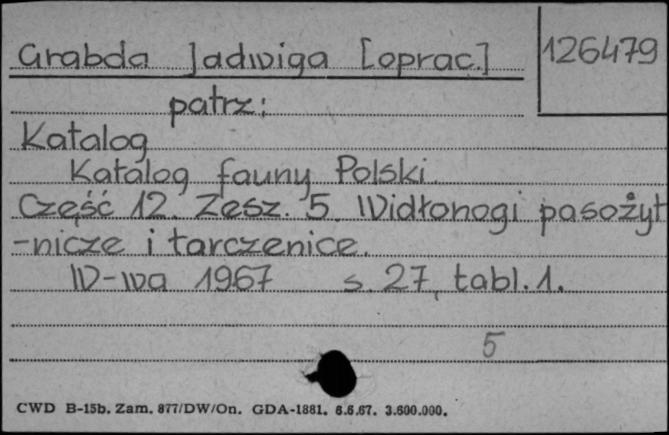 Grabda Jadwiga [oprac.] 126479
patrz:
Katalog
Katalog fauny Polski.
Część 12. Zesz. 5. Widłonogi pasożyt
-nicze i tarczenice.
W-wa 1967 s. 27, tabl. 1.
5
CWD B-15b. Zam. 877/DW/On. GDA-1881. 6.6.67. 3.600.000.